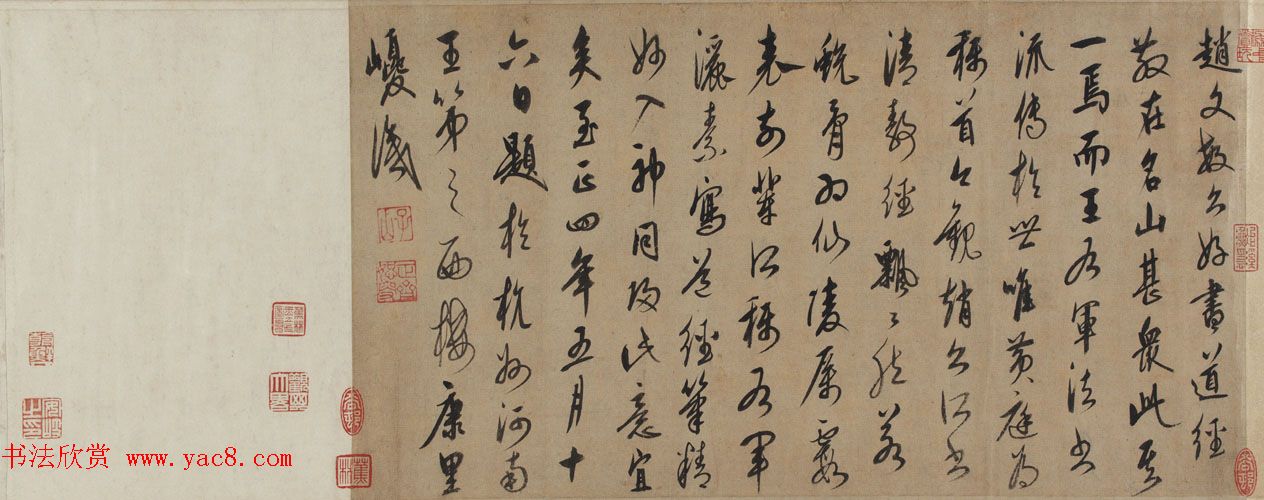 趙文敏公好書道經
散在名山甚衆此其
一焉而王右軍法書
流傳於世唯黄庭為
稱首今觀趙公所書
清静經飄々然若
蛻骨為仙陵厲霞
表前輩所稱右軍
瀟素寫道經筆精
妙入神同政此意宜
矣至正四年五月十
六日題於杭州河南
王第之西樓康里
巎識
书法欣赏 www.yac8.com